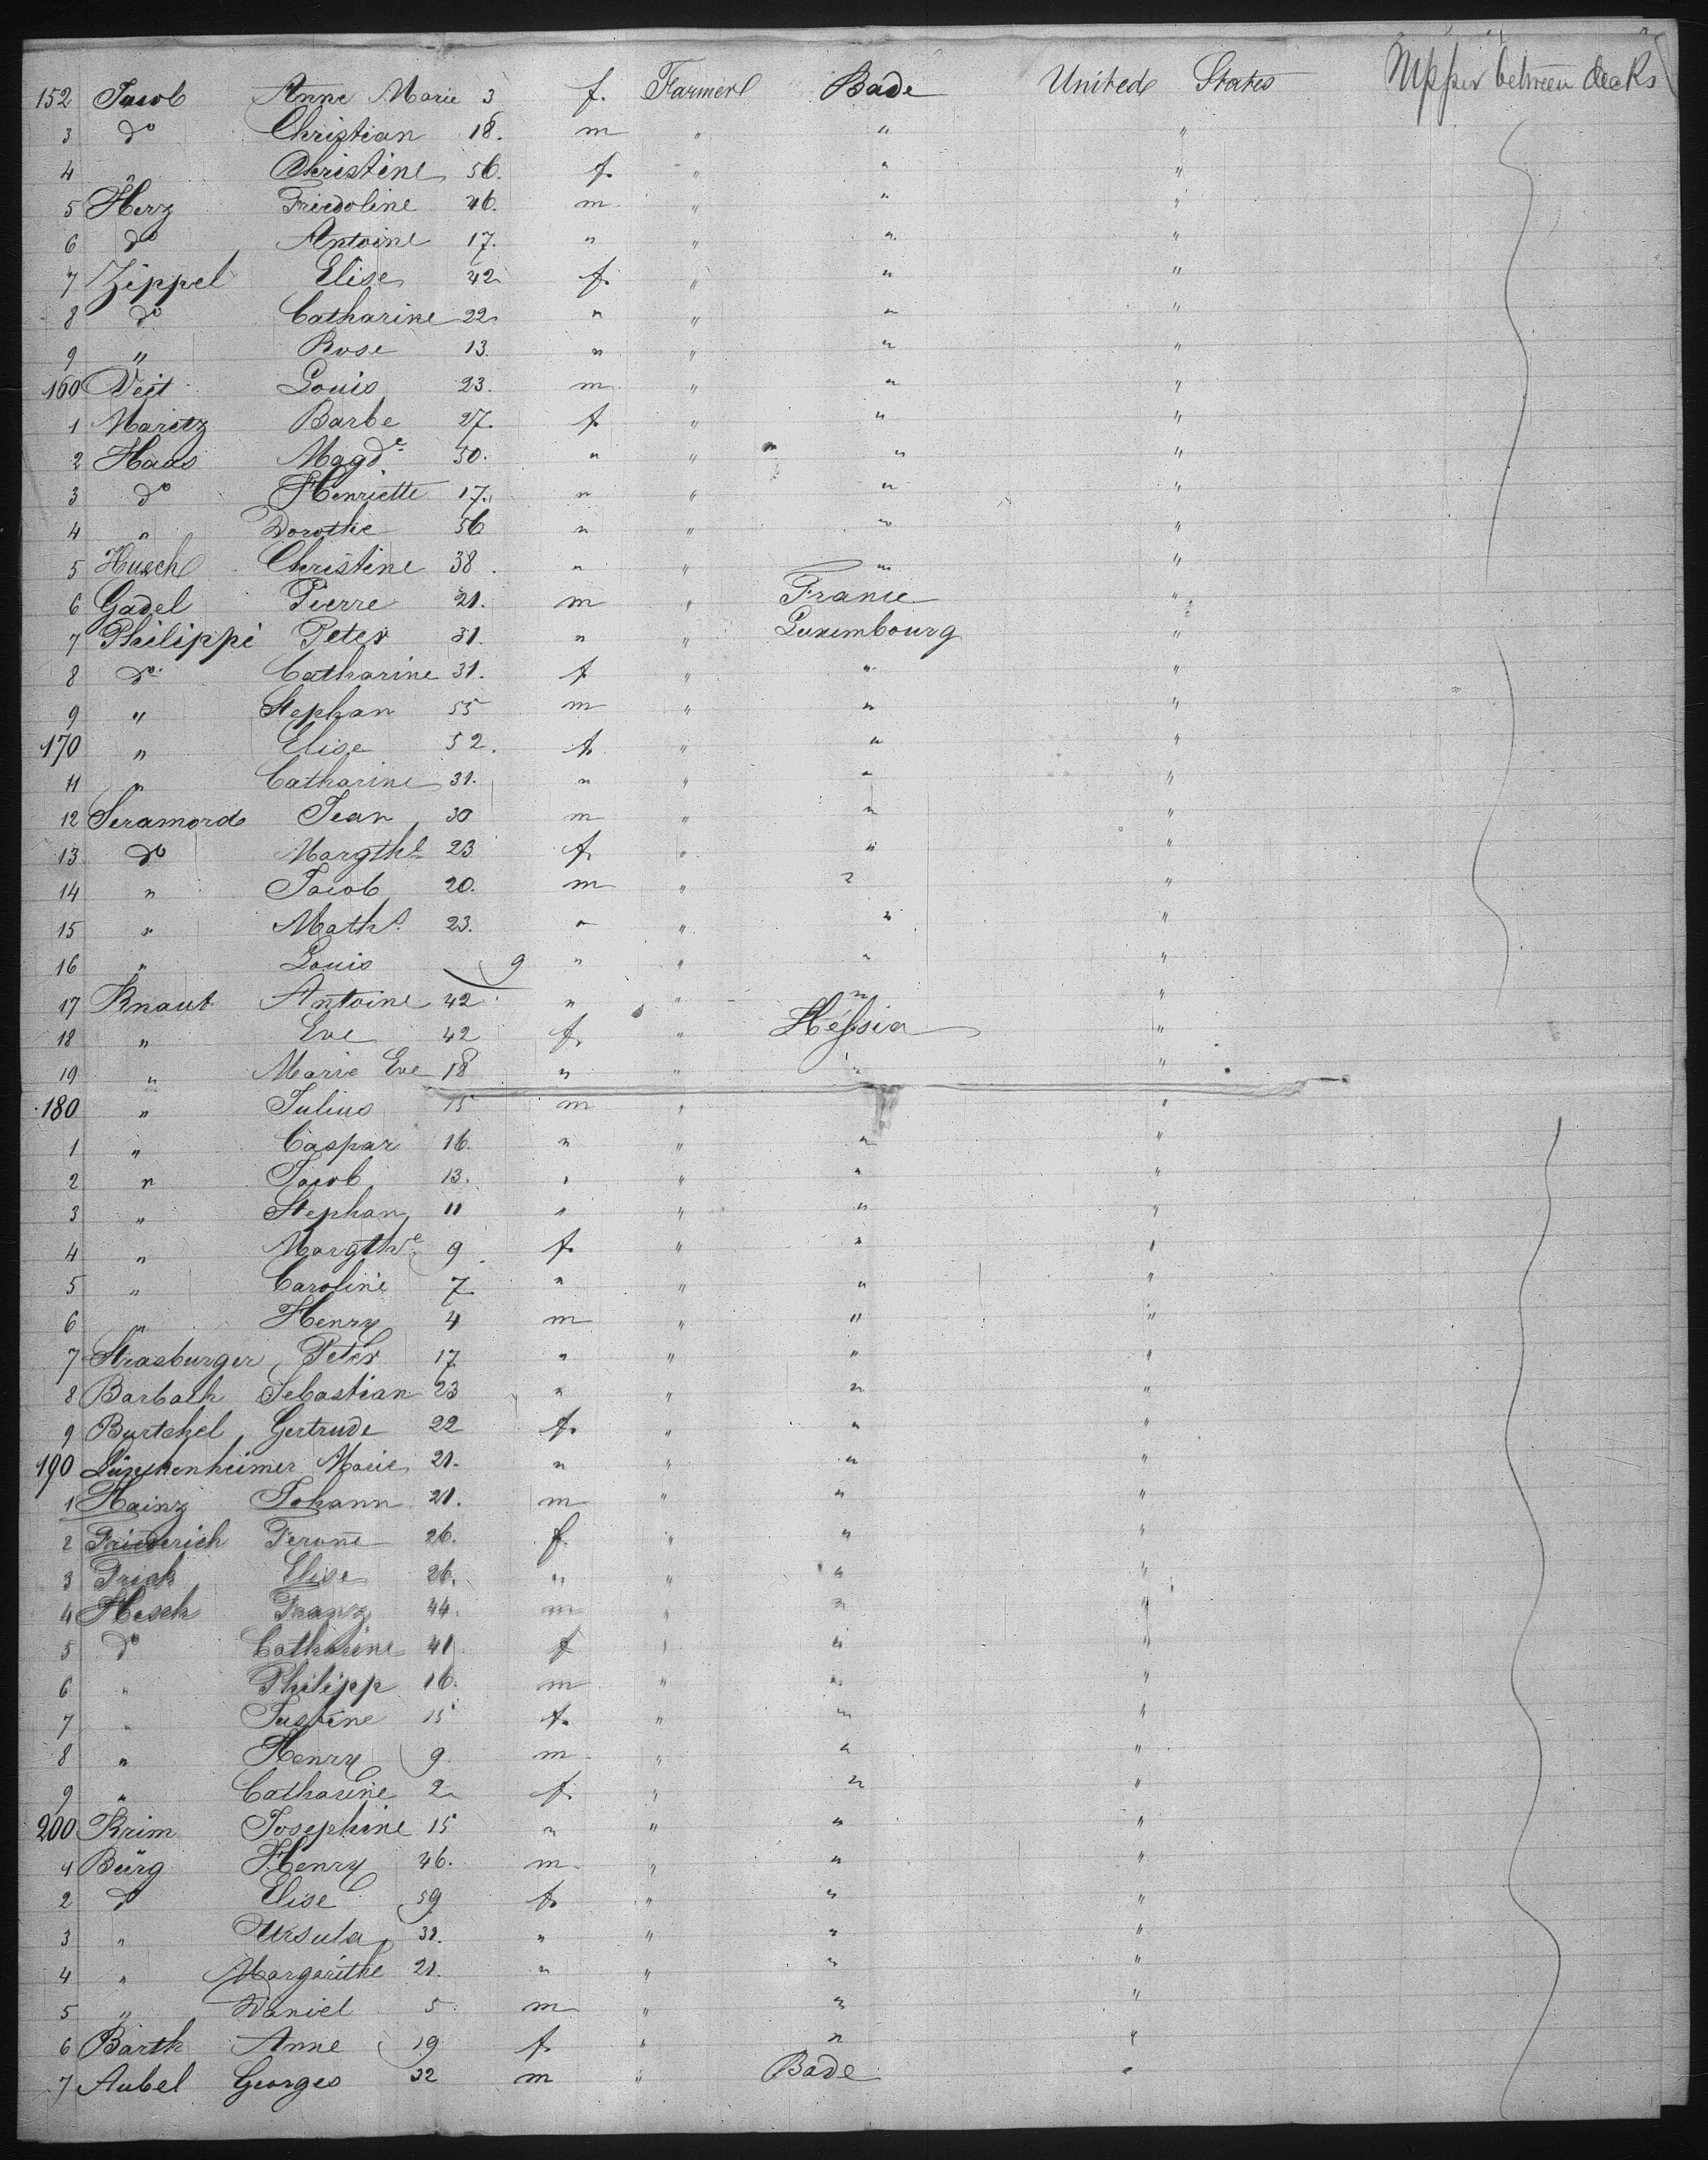 152 Jacob Anne Marie 3 f. Farmer Bade United States Upper between decks
3 do Christian 18. m " " "
4 " Christine 56. f. " " "
5 Herz Friedoline 46. m " " "
6 do Antoine 17. " " " "
7 Zippel Elise 42 f. " " "
8 do Catharine 22 " " " "
9 " Rose 13. " " " "
160 Veit Louis 23. m. " " "
1 Maritz Barbe 27. f. " " "
2 Haas Magde 30. " " " "
3 do Henriette 17. " " " "
4 " Dorothe 56 " " " "
5 Christine 38. " " " "
6 Gadel Pierre 21. m " France "
7 Philippi Peter 31. " " Luxembourg "
8 do. Catharine 31. f " " "
9 " Stephan 55 m " " "
170 " Elise 52. f. " " "
11 " Catharine 31. " " " "
12 Seramord Jean 30 m " " "
13 do Margthe 23 f. " " "
14 " Jacob 20. m " " "
15 " Maths 23. " " " "
16 " Louis 9 " " " "
17 Knaut Antoine 42 " " " "
18 " Eve 42 f. " Hessia "
19 " Marie Eve 18 " " " "
180 " Julius 15 m " "
1 " Caspar 16. " " " "
2 " Jacob 13. " " " "
3 " Stephan 11 " " " "
4 " Margthe 9 f. " " "
5 " Caroline 7 " " " "
6 " Henry 4 m " " "
7 Strasburger Peter 17 " " " "
8 Barbach Sebastian 23 " " " "
9 Burtchel Gertrude 22 f. " " "
190 Marie 21. " " " "
1 Hainz Johann 21. m " " "
2 Friederich 26. f. " " "
3 Frick Elise 26. " " " "
4 Hesch Franz 44. m " " "
5 do Catharine 41 f " " "
6 " Philipp 16. m " " "
7 " Justine 15 f. " " "
8 " Henry 9. m " " "
9 " Catharine 2 f. " " "
200 Krim Josephine 15 " " " "
1 Bürg Henry 46. m. " " "
2 do Elise 59 f. " " "
3 " Ursula 31. " " " "
4 " Margarethe 21. " " " "
5 " Daniel 5 m " " "
6 Barth Anne 19 f. " " "
7 Aubel Georges 32 m " Bade "